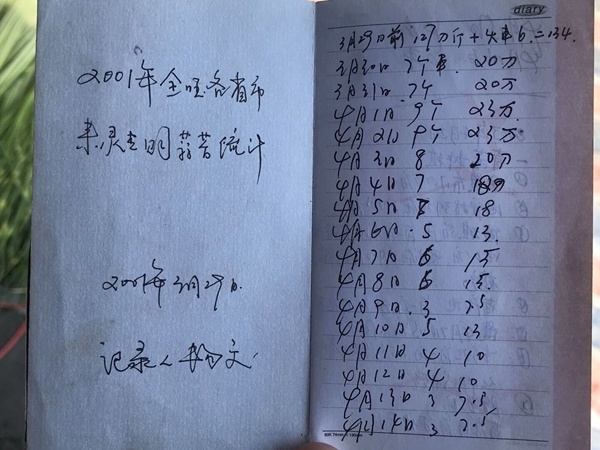 2001年全国各省市
来灵寺明蒜苔统计
2001年3月29日
记录人
diary
3月29日前 127万斤+4车6.=134.
3月30日 7个车. 20万
3月31日 7个 20万
4月1日 9个 23万
4月2日 9个 23万
4月3日 8 20万
4月4日 7 18万
4月5日 7 18
4月6日.5 13.
4月7日 6 15
4月8日 6 15.
4月9日.3 7.5
4月10日 5 13
4月11日 4 10
4月12日 4 10
4月13日 3 7.5
4月14日 3 7.5